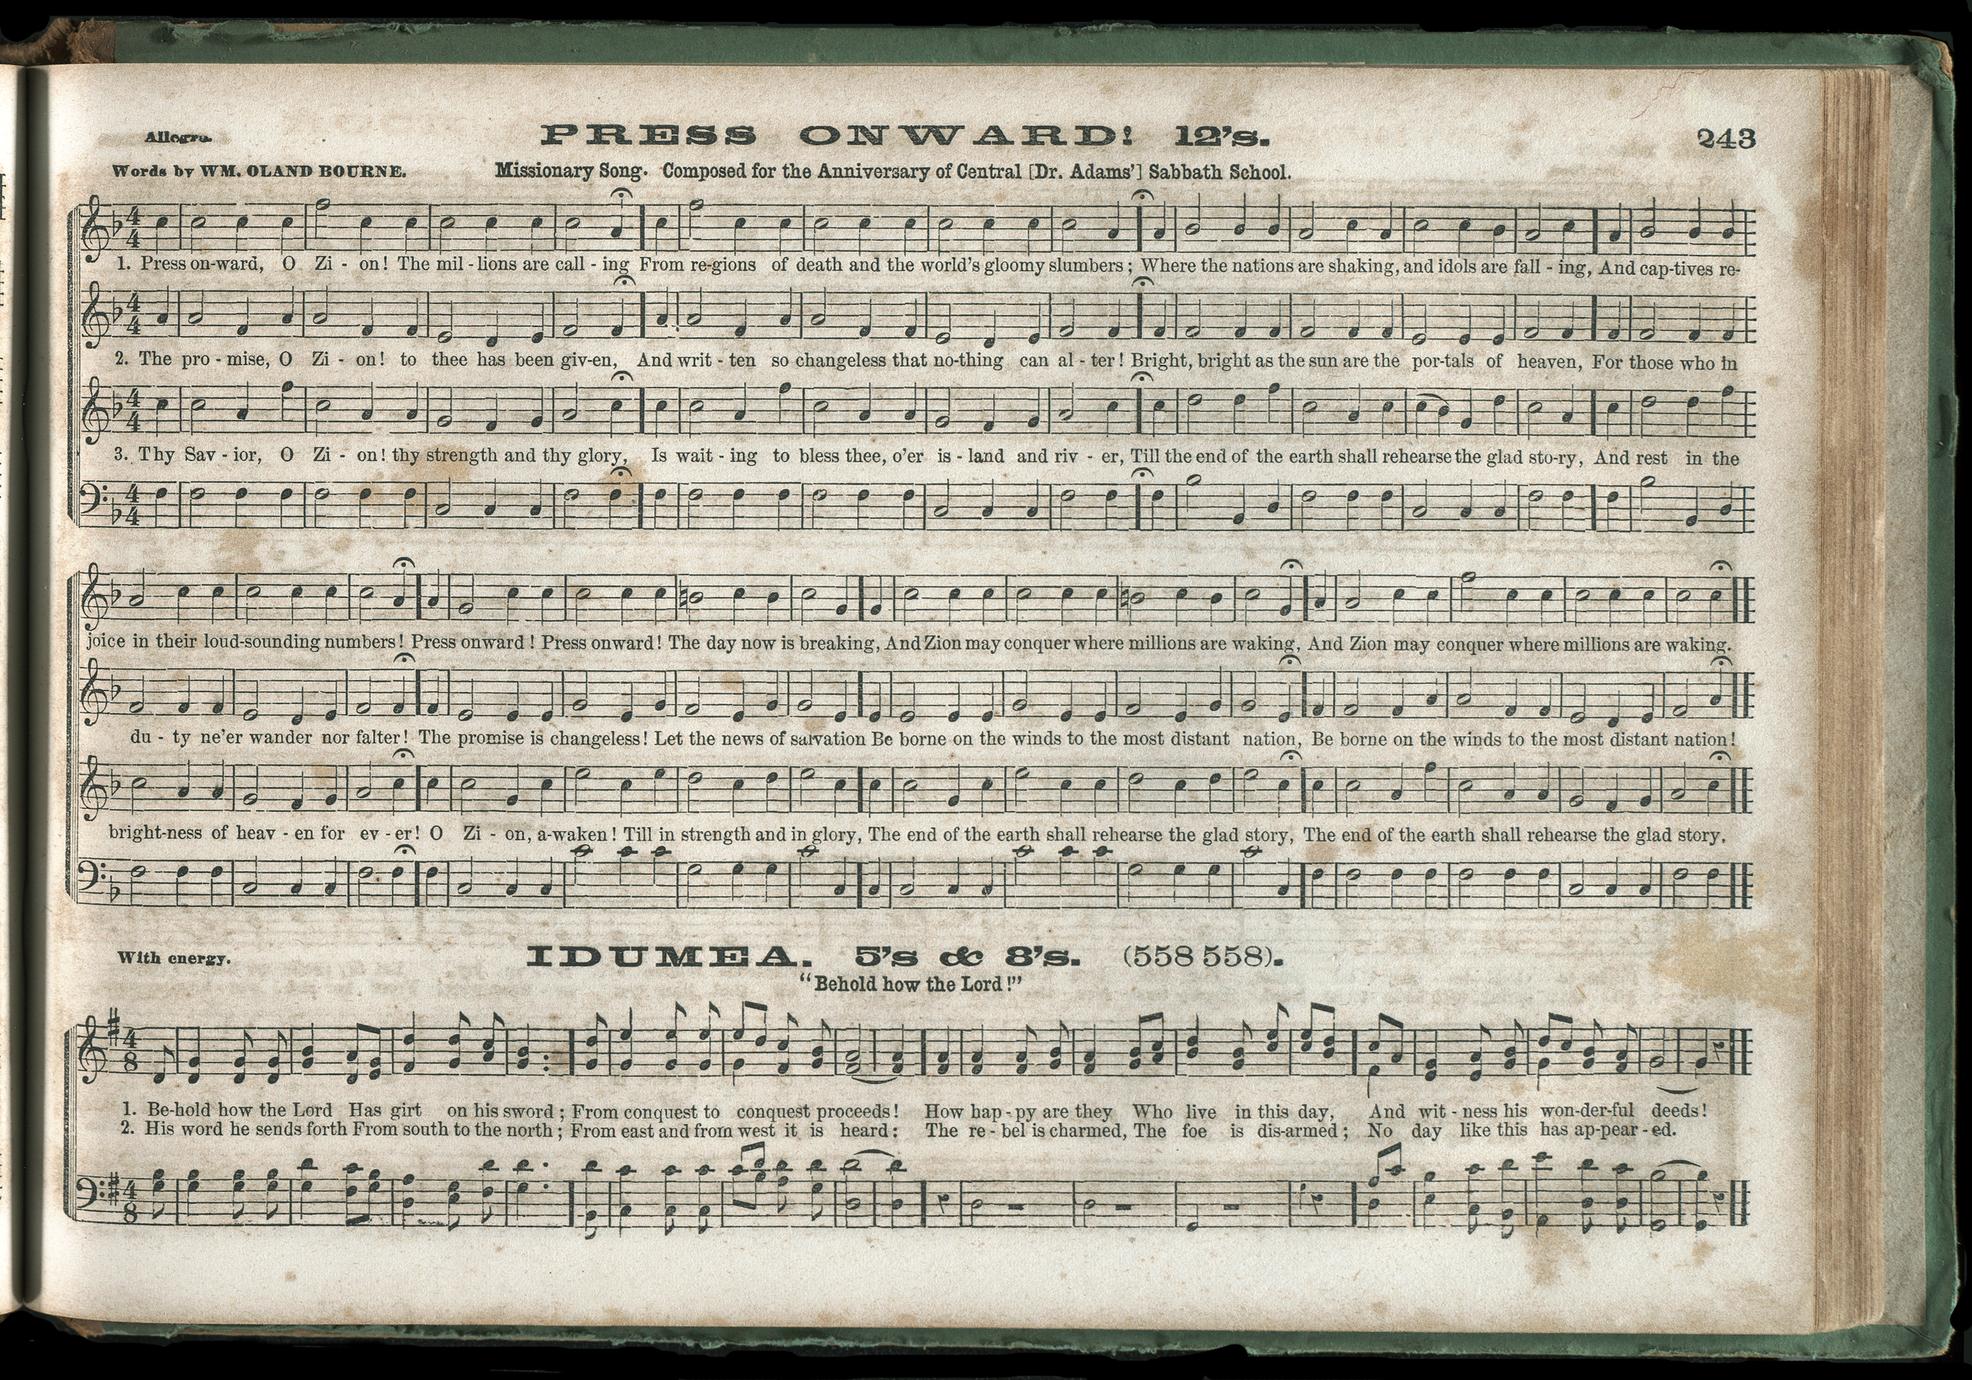 Allegro.
PRESS ONWARD! 12's.
243
Words by WM. OLAND BOURNE.
Missionary Song. Composed for the Anniversary of Central [Dr. Adams'] Sabbath School.
1. Press on-ward, O Zi - on! The mil - lions are call - ing From re-gions of death and the world's gloomy slumbers; Where the nations are shaking, and idols are fall - ing, And cap-tives re-
2. The pro - mise, O Zi - on! to thee has been giv-en, And writ - ten so changeless that no-thing can al - ter! Bright, bright as the sun are the por-tals of heaven, For those who in
3. Thy Sav - ior, O Zi - on! thy strength and thy glory, Is wait - ing to bless thee, o'er is - land and riv - er, Till the end of the earth shall rehearse the glad sto-ry, And rest in the
joice in their loud-sounding numbers! Press onward! Press onward! The day now is breaking, And Zion may conquer where millions are waking, And Zion may conquer where millions are waking.
du - ty ne'er wander nor falter! The promise is changeless! Let the news of salvation Be borne on the winds to the most distant nation, Be borne on the winds to the most distant nation!
bright-ness of heav - en for ev - er! O Zi - on, a-waken! Till in strength and in glory, The end of the earth shall rehearse the glad story, The end of the earth shall rehearse the glad story,
With energy.
IDUMEA. 5's & 8's. (558 558).
"Behold how the Lord!"
1. Be-hold how the Lord Has girt on his sword; From conquest to conquest proceeds! How hap - py are they Who live in this day, And wit - ness his won-der-ful deeds!
2. His word he sends forth From south to the north; From east and from west it is heard: The re - bel is charmed, The foe is dis-armed; No day like this has ap-pear - ed.